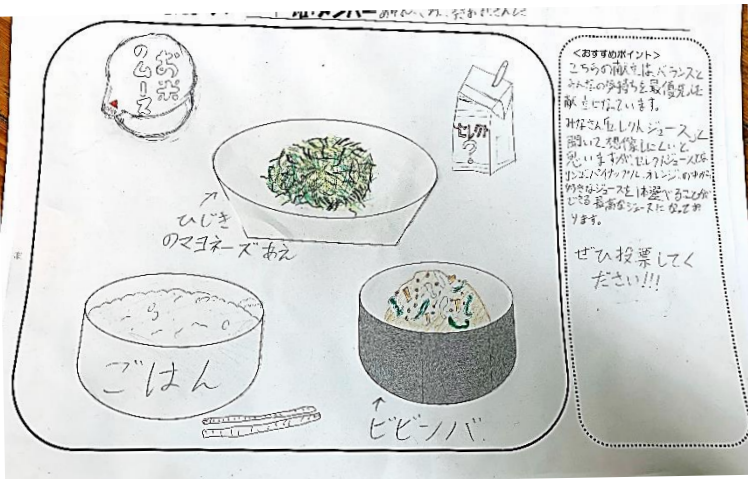 お米
のムース
セレクト
?
ひじき
のマヨネーズあえ
ごはん
ビビンバ
<おすすめポイント>
こちらの献立は、バランスと
みんなの気持ちを最優先した
献立になっています。
みなさん「セレクトジュース」と
聞いて、想像しにくいと
思いますが、セレクトジュースとは、
リンゴ、パイナップル、オレンジ、の中から
好きなジュースを1本選べることが
できる最高なジュースになってお
ります。
ぜひ投票してく
ださい!!!